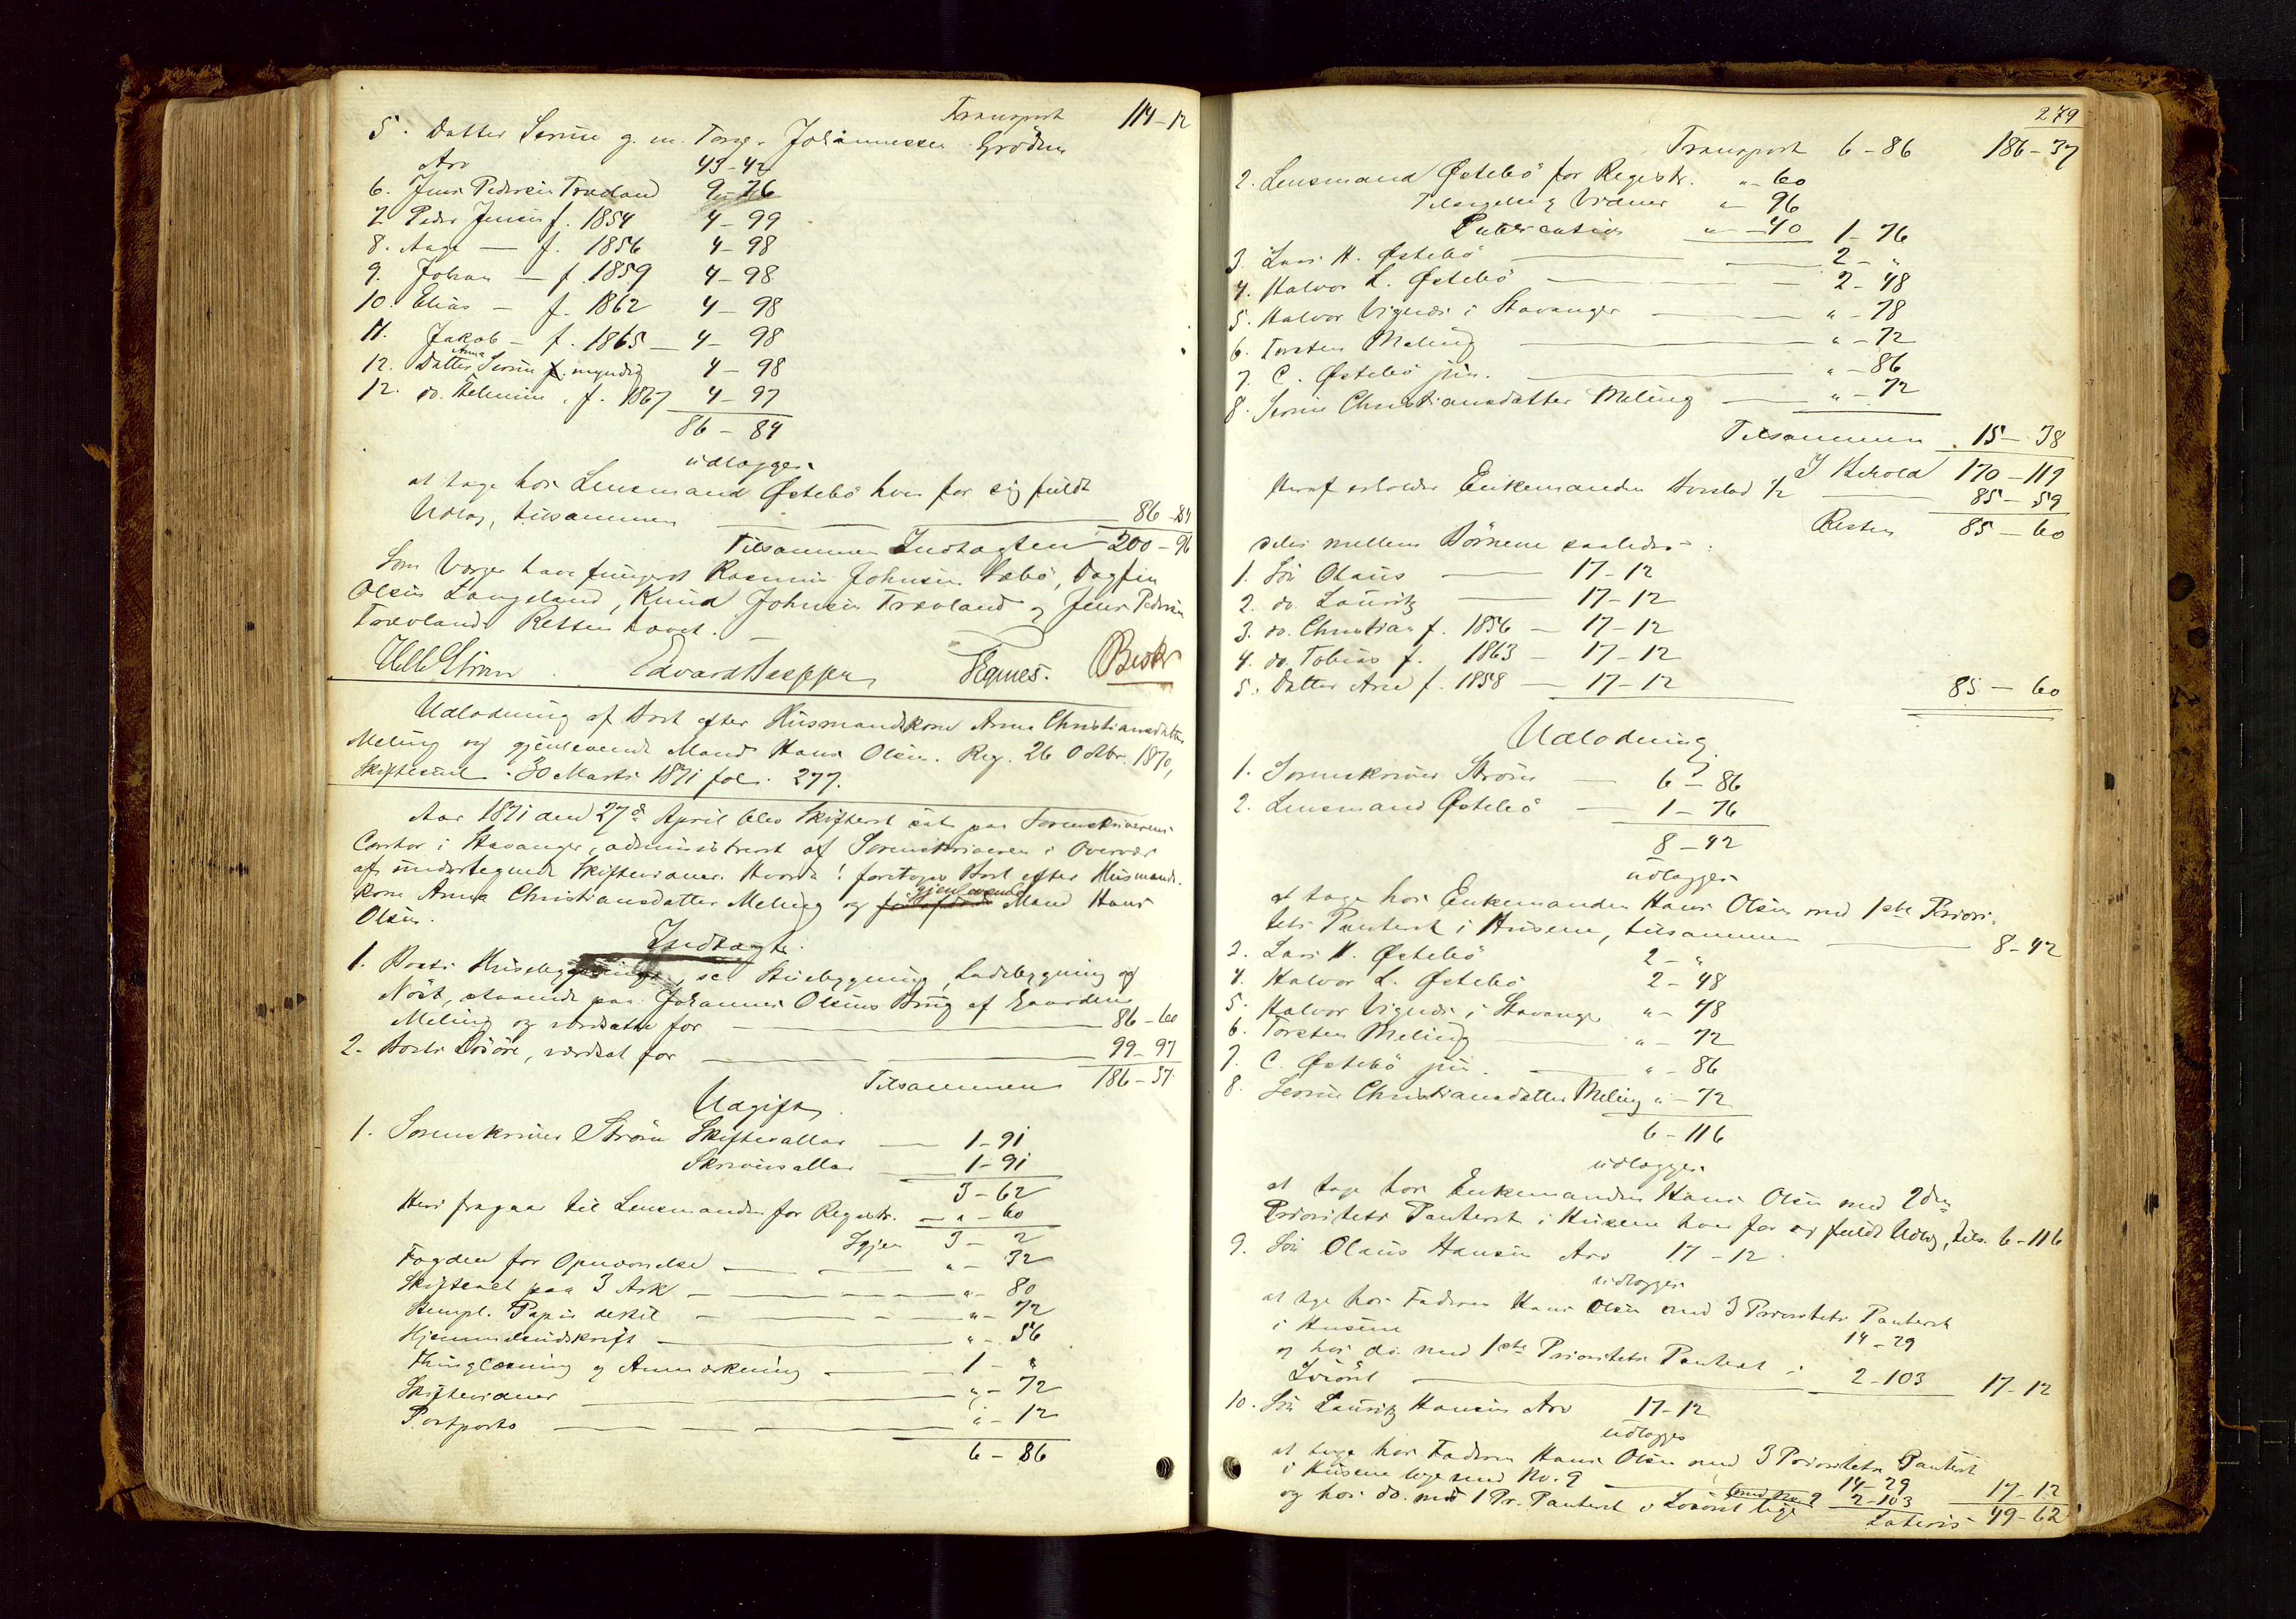 Transport 114-12
5. Datter Serine g. m. Torg. Johannessen Gröden
Arv 45-42
6. Jens Pedersen Træland 9-76
7. Peder Jensen f. 1854 4-99
8. Aage — f. 1856 4-98
9. Johan — f. 1859 4-98
10. Elias — f. 1862 4-98
11. Jakob — f. 1865 — 4-98
12. Datter Anna Serine f. myndig 4-98
12. do. Helmine, f. 1867 4-97
86-84
udlægges
at tage hos Lensmand Østebö hver for sig fuldt
Udlæg, tilsammen 86-84
Tilsammen Indtægten 200-96
Som Værger have fungeret Rasmus Johnsen Bebö, Dagfin
Olsen Langeland, Knud Johnsen Trævland og Jens Pedersen
Trævland. Retten hævet.
Edvard Seppe Egnes.
Udlodning af Boet efter Huusmandskone Anna Christiansdatter
Meling og gjenlevende Mand Hans Olsen. Reg. 26 Octbr. 1870,
Skiftesaml. 30 Marts 1871 fol. 277.
Aar 1871 den 27de April blev Skifteret sat paa Sorenskriverens
Contor i Stavanger, administreret af Sorenskriveren i Overvær
af undertegnede Skiftevidner. Hvorda! foretoges Boet efter Huusmands-
kone Anna Christiansdatter Meling og gjenlevende Mand Hans
Olsen.
Indtægt.
1. Boets Huusebygninger, sc. Stuebygning, Ladebygning og
Nöst, staaende paa Johannes Olsens Brug af Gaarden
Meling og værdsatte for 86-60
2. Boets Lösöre, værdsat for 99-97
Tilsammen 186-37
Udgift
1. Sorenskriver Ström Skiftesallar 1-91
Skriversallar 1-91
3-62
Heri fragaar til Lensmanden for Registr. "-60
Igjen 3-2
Fogden for Opnævnelse "-32
Skiftebrevet paa 3 Ark "-80
Stempl. Papir dertil "-72
Hjemmelsudskrift "-56
Thinglæsning og Anmærkning 1-"
Skiftevidner "-72
Postporto "-12
6-86
279
Transport 6-86 186-37
2. Lensmand Østebö for Registr. "-60
Tilsigelse og Vidner "-96
Publication "-40 1-76
3. Lars H. Østebö 2-"
4. Halvor L. Østebö 2-48
5. Halvor Vignes i Stavanger "-78
6. Torsten Meling "-72
7. C. Østebö jun. "-86
8. Serine Christiansdatter Meling "-72
Tilsammen 15-38
I Behold 170-119
Heraf erholder Enkemanden Boeslod 1/2 85-59
Resten 85-60
deles mellem Börnene saaledes:
1. Sön Olaus 17-12
2. do. Lauritz 17-12
3. do. Christian f. 1856 — 17-12
4. do. Tobias f. 1863 — 17-12
5. Datter Ane f. 1858 — 17-12 85-60
Udlodning
1. Sorenskriver Ström 6-86
2. Lensmand Østebö 1-76
8-42
udlægges
at tage hos Enkemanden Hans Olsen med 1ste Priori-
tets Panteret i Husene, tilsammen 8-42
3. Lars H. Østebö 2-"
4. Halvor L. Østebö 2-48
5. Halvor Vignes i Stavanger "-48
6. Torsten Meling "-72
7. C. Østebö jun. "-86
8. Serine Christiansdatter Meling "-72
6-116
udlægges
at tage hos Enkemanden Hans Olsen med 2den
Prioritets Panteret i Husene hver for sig fuldt Udlæg, tils. 6-116
9. Sön Olaus Hansen Arv 17-12
udlægges
at tage hos Faderen Hans Olsen med 3 Prioritets Panteret
i Husene 14-29
og hos do. med 1ste Prioritets Panteret i
Lösöret 2-103 17-12
10. Sön Lauritz Hansen Arv 17-12
udlægges
at tage hos Faderen Hans Olsen med 3 Prioritets Panteret
i Husene lige med No. 9 14-29
og hos do. med 1 Pr. Panteret i Lösöret lige med No 9 2-103 17-12
Lateris 49-62